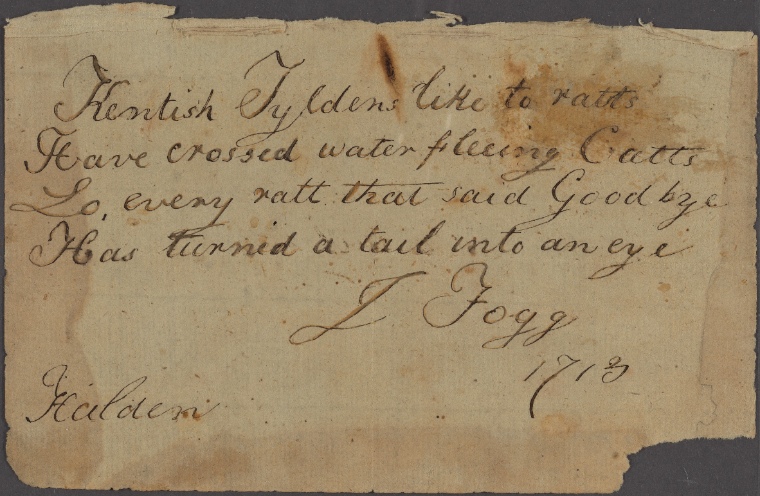 Kentish Tyldens like to ratts
Have crossed water fleeing Catts
Lo, every ratt that said Good bye
Has turnid a tail into an eye
J Fogg
1713
Halden